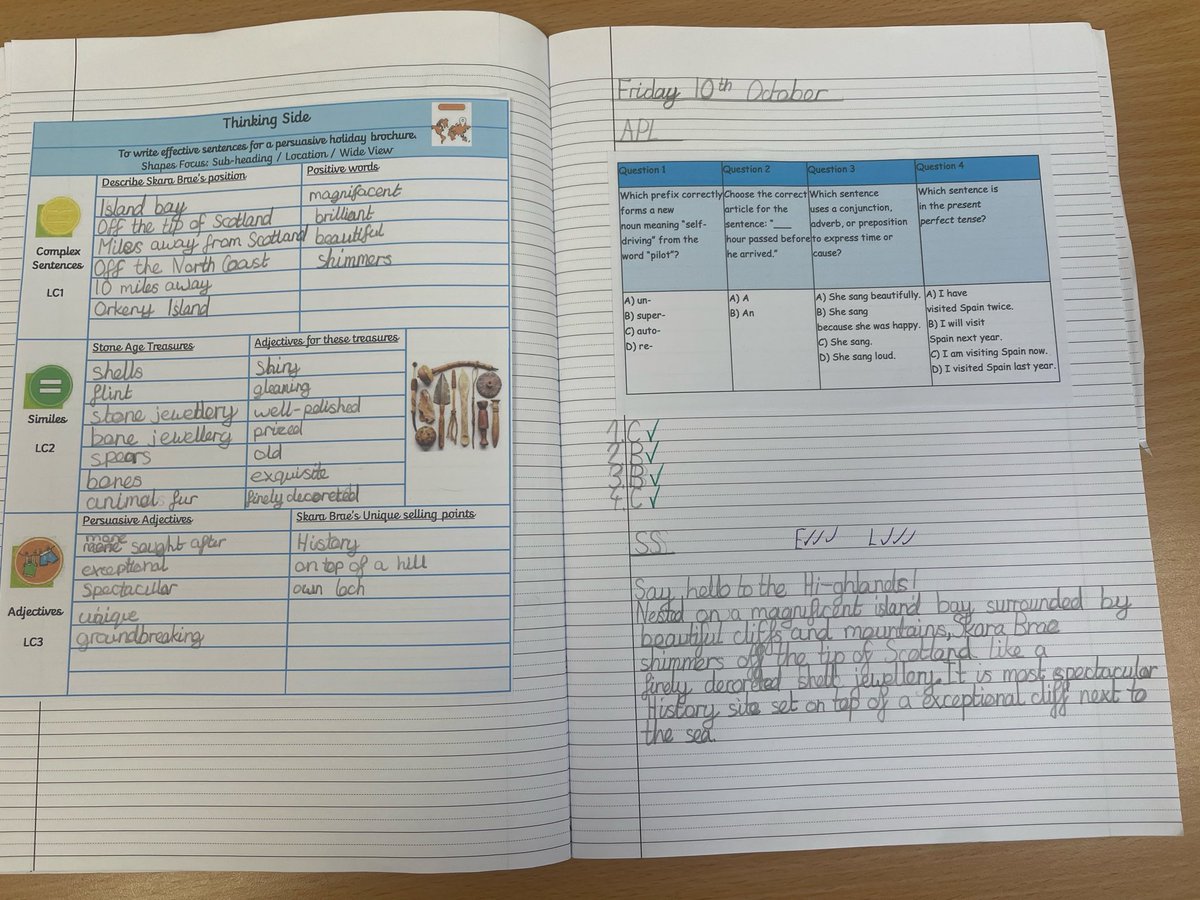 Thinking Side
To write effective sentences for a persuasive holiday brochure.
Shapes Focus: Sub-heading / Location / Wide View
Complex
Sentences
LC1
Describe Skara Brae's position
Island bay
Off the tip of Scotland
Miles away from Scotland
Off the North Coast
10 miles away
Orkeny Island
Positive words
magnifacent
brilliant
beautiful
shimmers
Similes
LC2
Stone Age Treasures
shells
flint
stone jewellery
bone jewellery
spears
bones
animal fur
Adjectives for these treasures
Shiny
gleaning
well-polished
prized
old
exquisite
finely decoreted
Adjectives
LC3
Persuasive Adjectives
more sought after
exceptional
Spectacular
unique
groundbreaking
Skara Brae's Unique selling points
History
on top of a hill
own loch
Friday 10th October
APL
Question 1
Which prefix correctly
forms a new
noun meaning "self-
driving" from the
word "pilot"?
A) un-
B) super-
C) auto-
D) re-
Question 2
Choose the correct
article for the
sentence: "___
hour passed before
he arrived."
A) A
B) An
Question 3
Which sentence
uses a conjunction,
adverb, or preposition
to express time or
cause?
A) She sang beautifully.
B) She sang
because she was happy.
C) She sang.
D) She sang loud.
Question 4
Which sentence is
in the present
perfect tense?
A) I have
visited Spain twice.
B) I will visit
Spain next year.
C) I am visiting Spain now.
D) I visited Spain last year.
1. C ✓
2. B ✓
3. B ✓
4. C ✓
SS E✓✓✓ L✓✓✓
Say hello to the Hi-ghlands!
Nested on a magnificent island bay surrounded by
beautiful cliffs and mountains, Skara Brae
shimmers off the tip of Scotland like a
finely decoreted shell jewellery. It is most spectacular
History site set on top of a exceptional cliff next to
the sea.